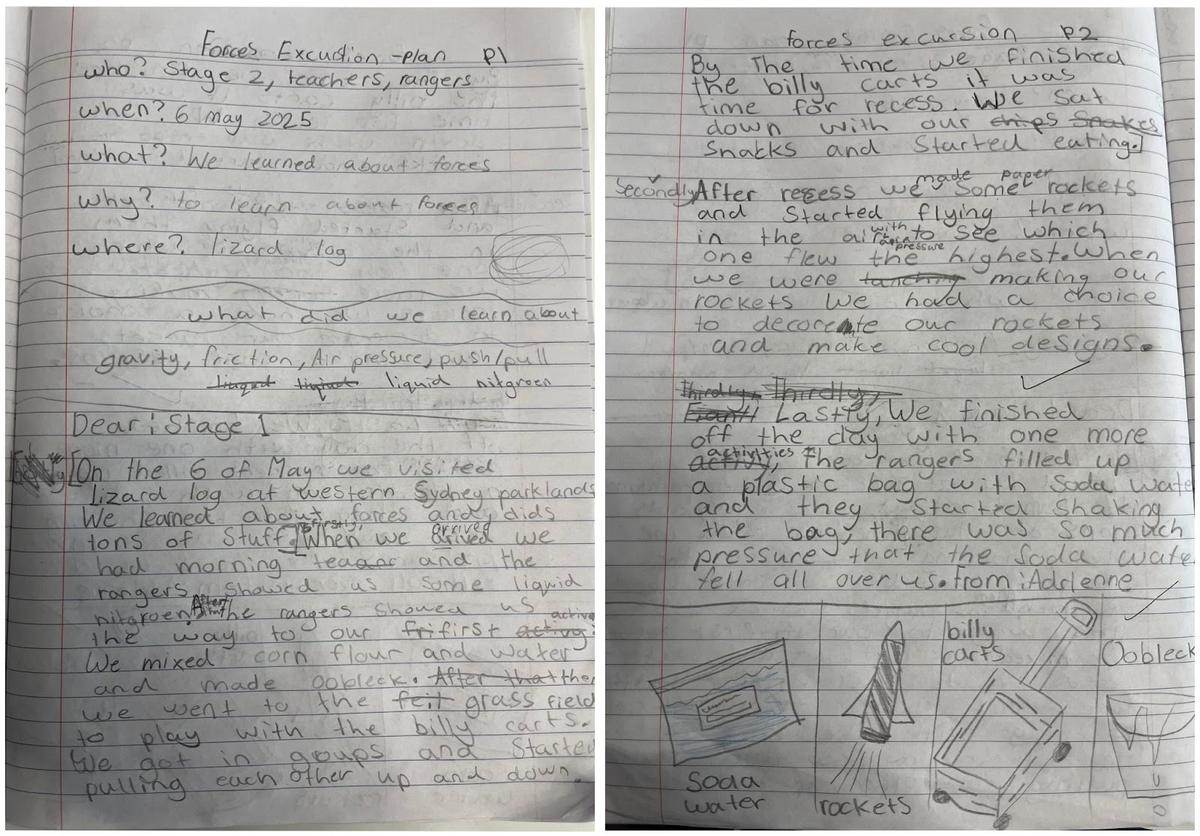 Forces Excustion -plan P1
who? Stage 2, teachers, rangers
when? 6 may 2025
what? We learned about forces
why? to learn about forces
where? lizard log
what did we learn about
gravity, friction, Air pressure, push/pull
liquid nitgroen
Dear: Stage 1
[On the 6 of May we visited
Lizard log at western Sydney parklands
We learned about forces and dids
tons of Stuff.] [firstly, When we arrived we
had morning tea and the
rangers Showed us some liquid
nitgroen. After the rangers Showed us
the way to our first active
We mixed corn flour and water
and made oobleck. After that the
we went to the feit grass field
to play with the billy carts.
We got in groups and Starte
pulling each other up and down.
forces excursion P2
By The time we finished
the billy carts it was
time for recess. We Sat
down with our chips Snakes
Snacks and Started eating.]
Secondly, After resess we made Some paper rockets
and Started flying them
in the air with to See which
pressure
one flew the highest. When
we were making our
rockets We had a choice
to decorate our rockets
and make cool designs.
Thirdly, Thirdly,
Lastly, We finished
off the day with one more
activities, The rangers filled up
a plastic bag with Soda Wate
and they Started Shaking
the bag, there was So much
pressure that the Soda wate
fell all over us. from: Adrienne
Soda
water
rockets
billy
carts
Oobleck